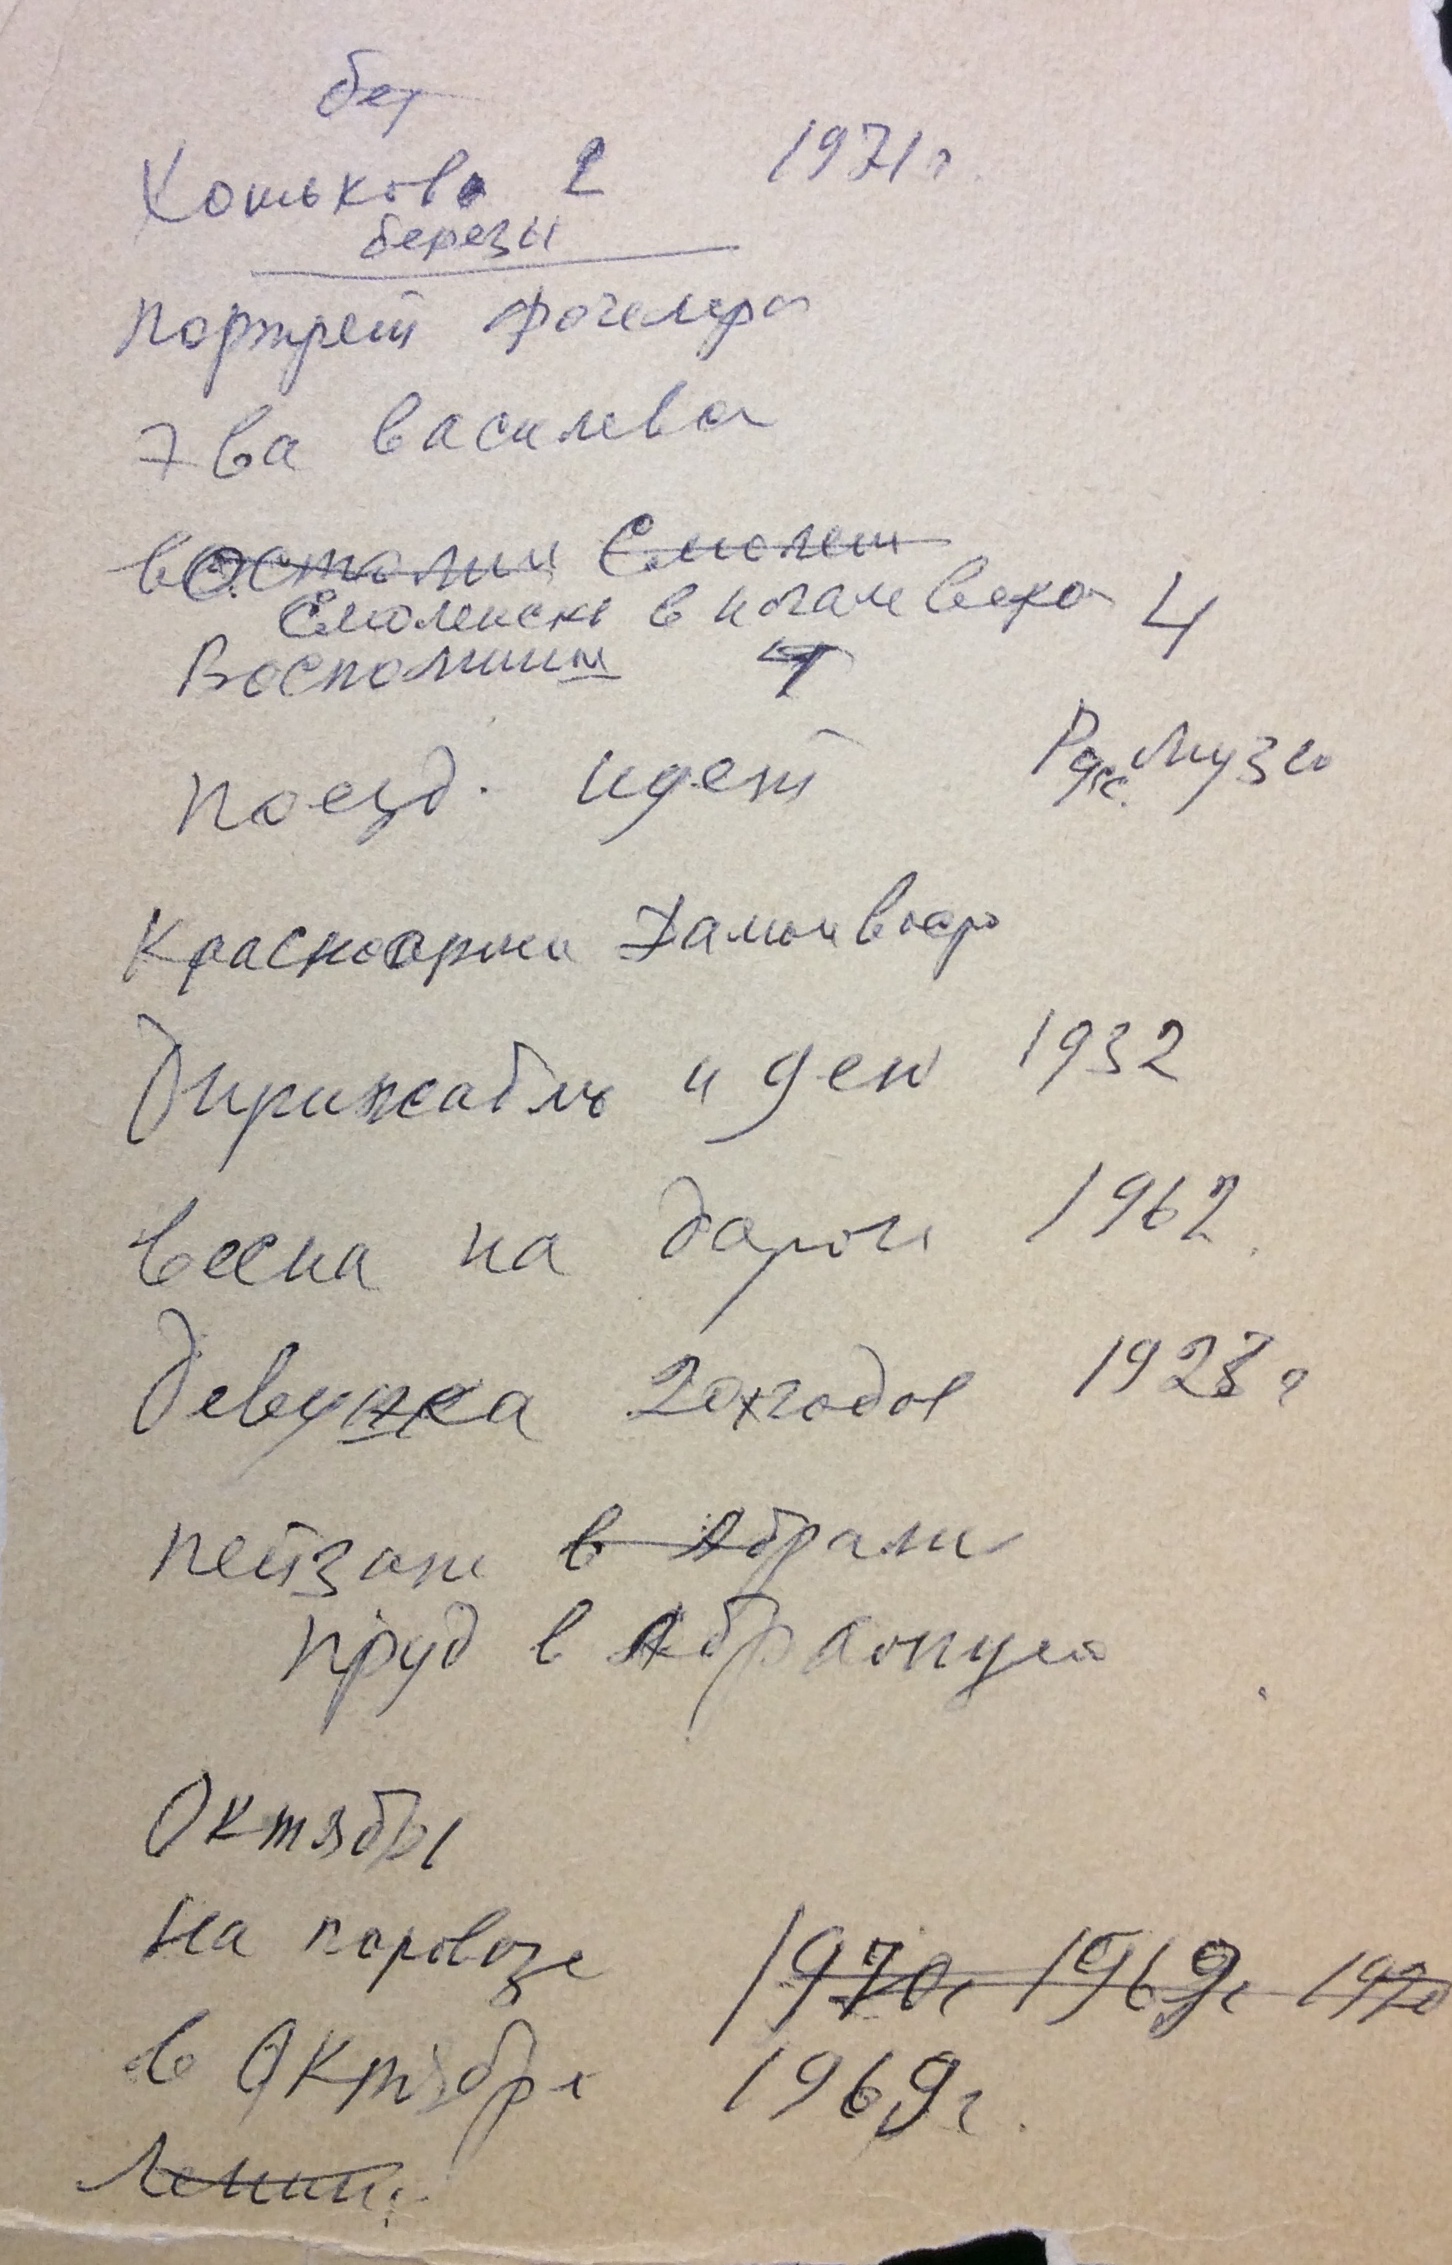 бер
Хотьково 2 1971г.
березы
портрет Фогелера
Два васильева
Смолен
Смоленск в начале века 4
Воспомин
поезд. идет Рус. Музео
Дирижабль и дет 1932
весна на дароги 1962.
девушка 20х годов 1928г
пейзаж в Абрам
пруд в Абрамцево
Октябрь
на паровозе 1970г 1969г 1970
в Октябре 1969г.
Ленин